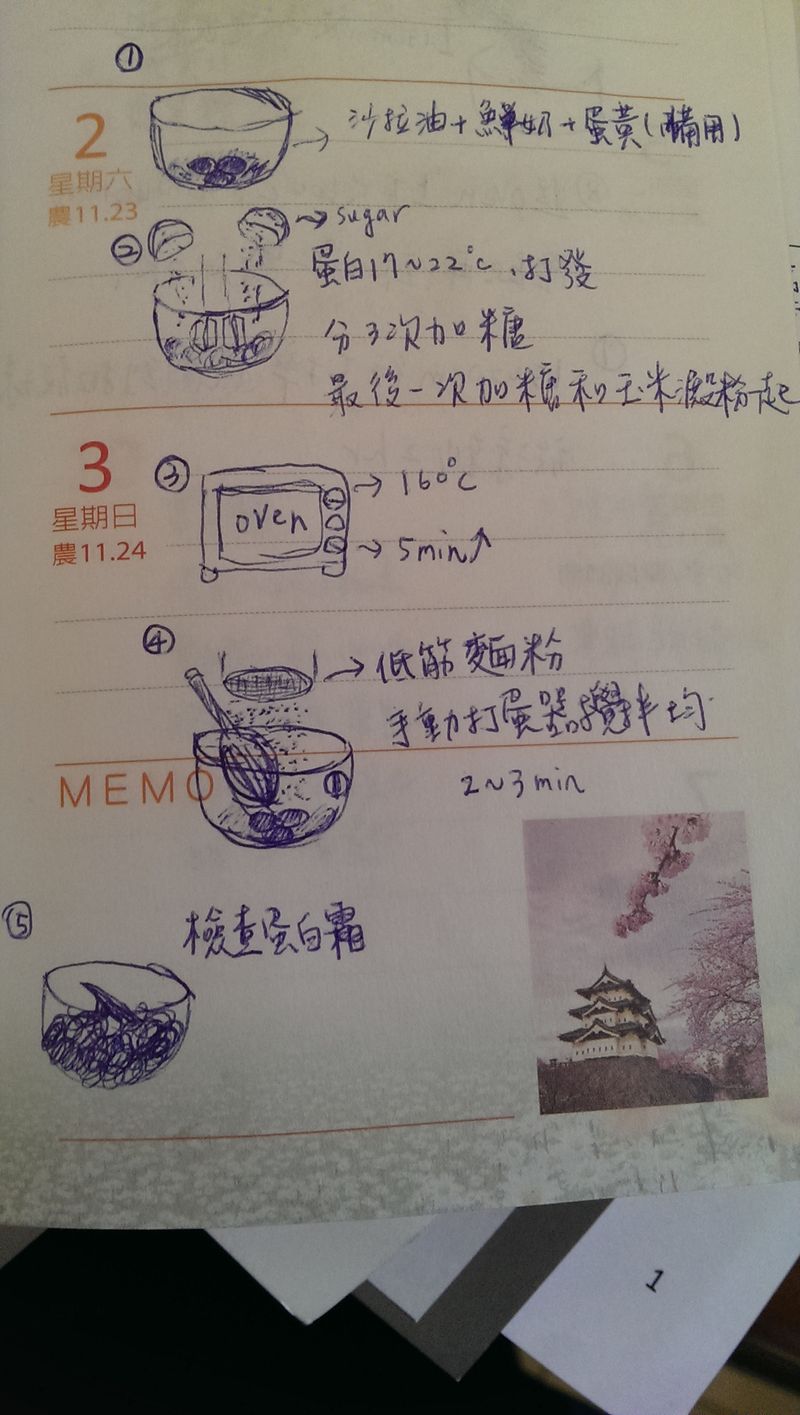 ①
2
星期六
農11.23
沙拉油+鮮奶+蛋黃(備用)
②
→sugar
蛋白17~22°c、打發
分3次加糖
最後一次加糖和玉米澱粉一起
3
星期日
農11.24
③
oven
→160°c
→5min↑
④
→低筋麵粉
手動打蛋器攪拌均
2~3min
MEMO
①
⑤
檢查蛋白霜
1